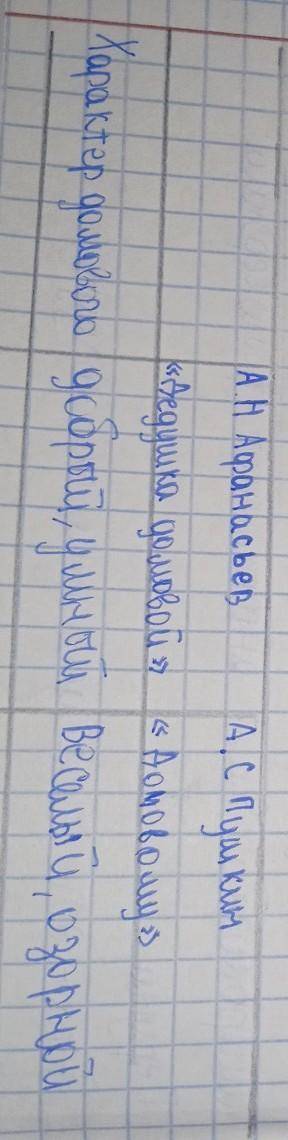 А.Н Афанасьев А.С Пушкин
«Дедушка домовой» «Домовому»
Характер домового добрый, умный веселый, озорной